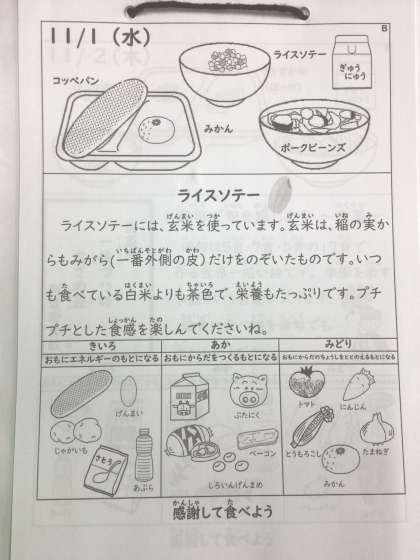 11/1（水）
B
ライスソテー
ぎゅうにゅう
コッペパン
みかん
ポークビーンズ
ライスソテー
ライスソテーには、玄米を使っています。玄米は、稲の実か
らもみがら(一番外側の皮)だけをのぞいたものです。いつ
も食べている白米よりも茶色で、栄養もたっぷりです。プチ
プチとした食感を楽しんでくださいね。
きいろ
あか
みどり
おもにエネルギーのもとになる
おもにからだをつくるもとになる
おもにからだのちょうしをととのえるもとになる
げんまい
じゃがいも
さとう
あぶら
ぶたにく
ベーコン
しろいんげんまめ
トマト
にんじん
とうもろこし
たまねぎ
みかん
感謝して食べよう